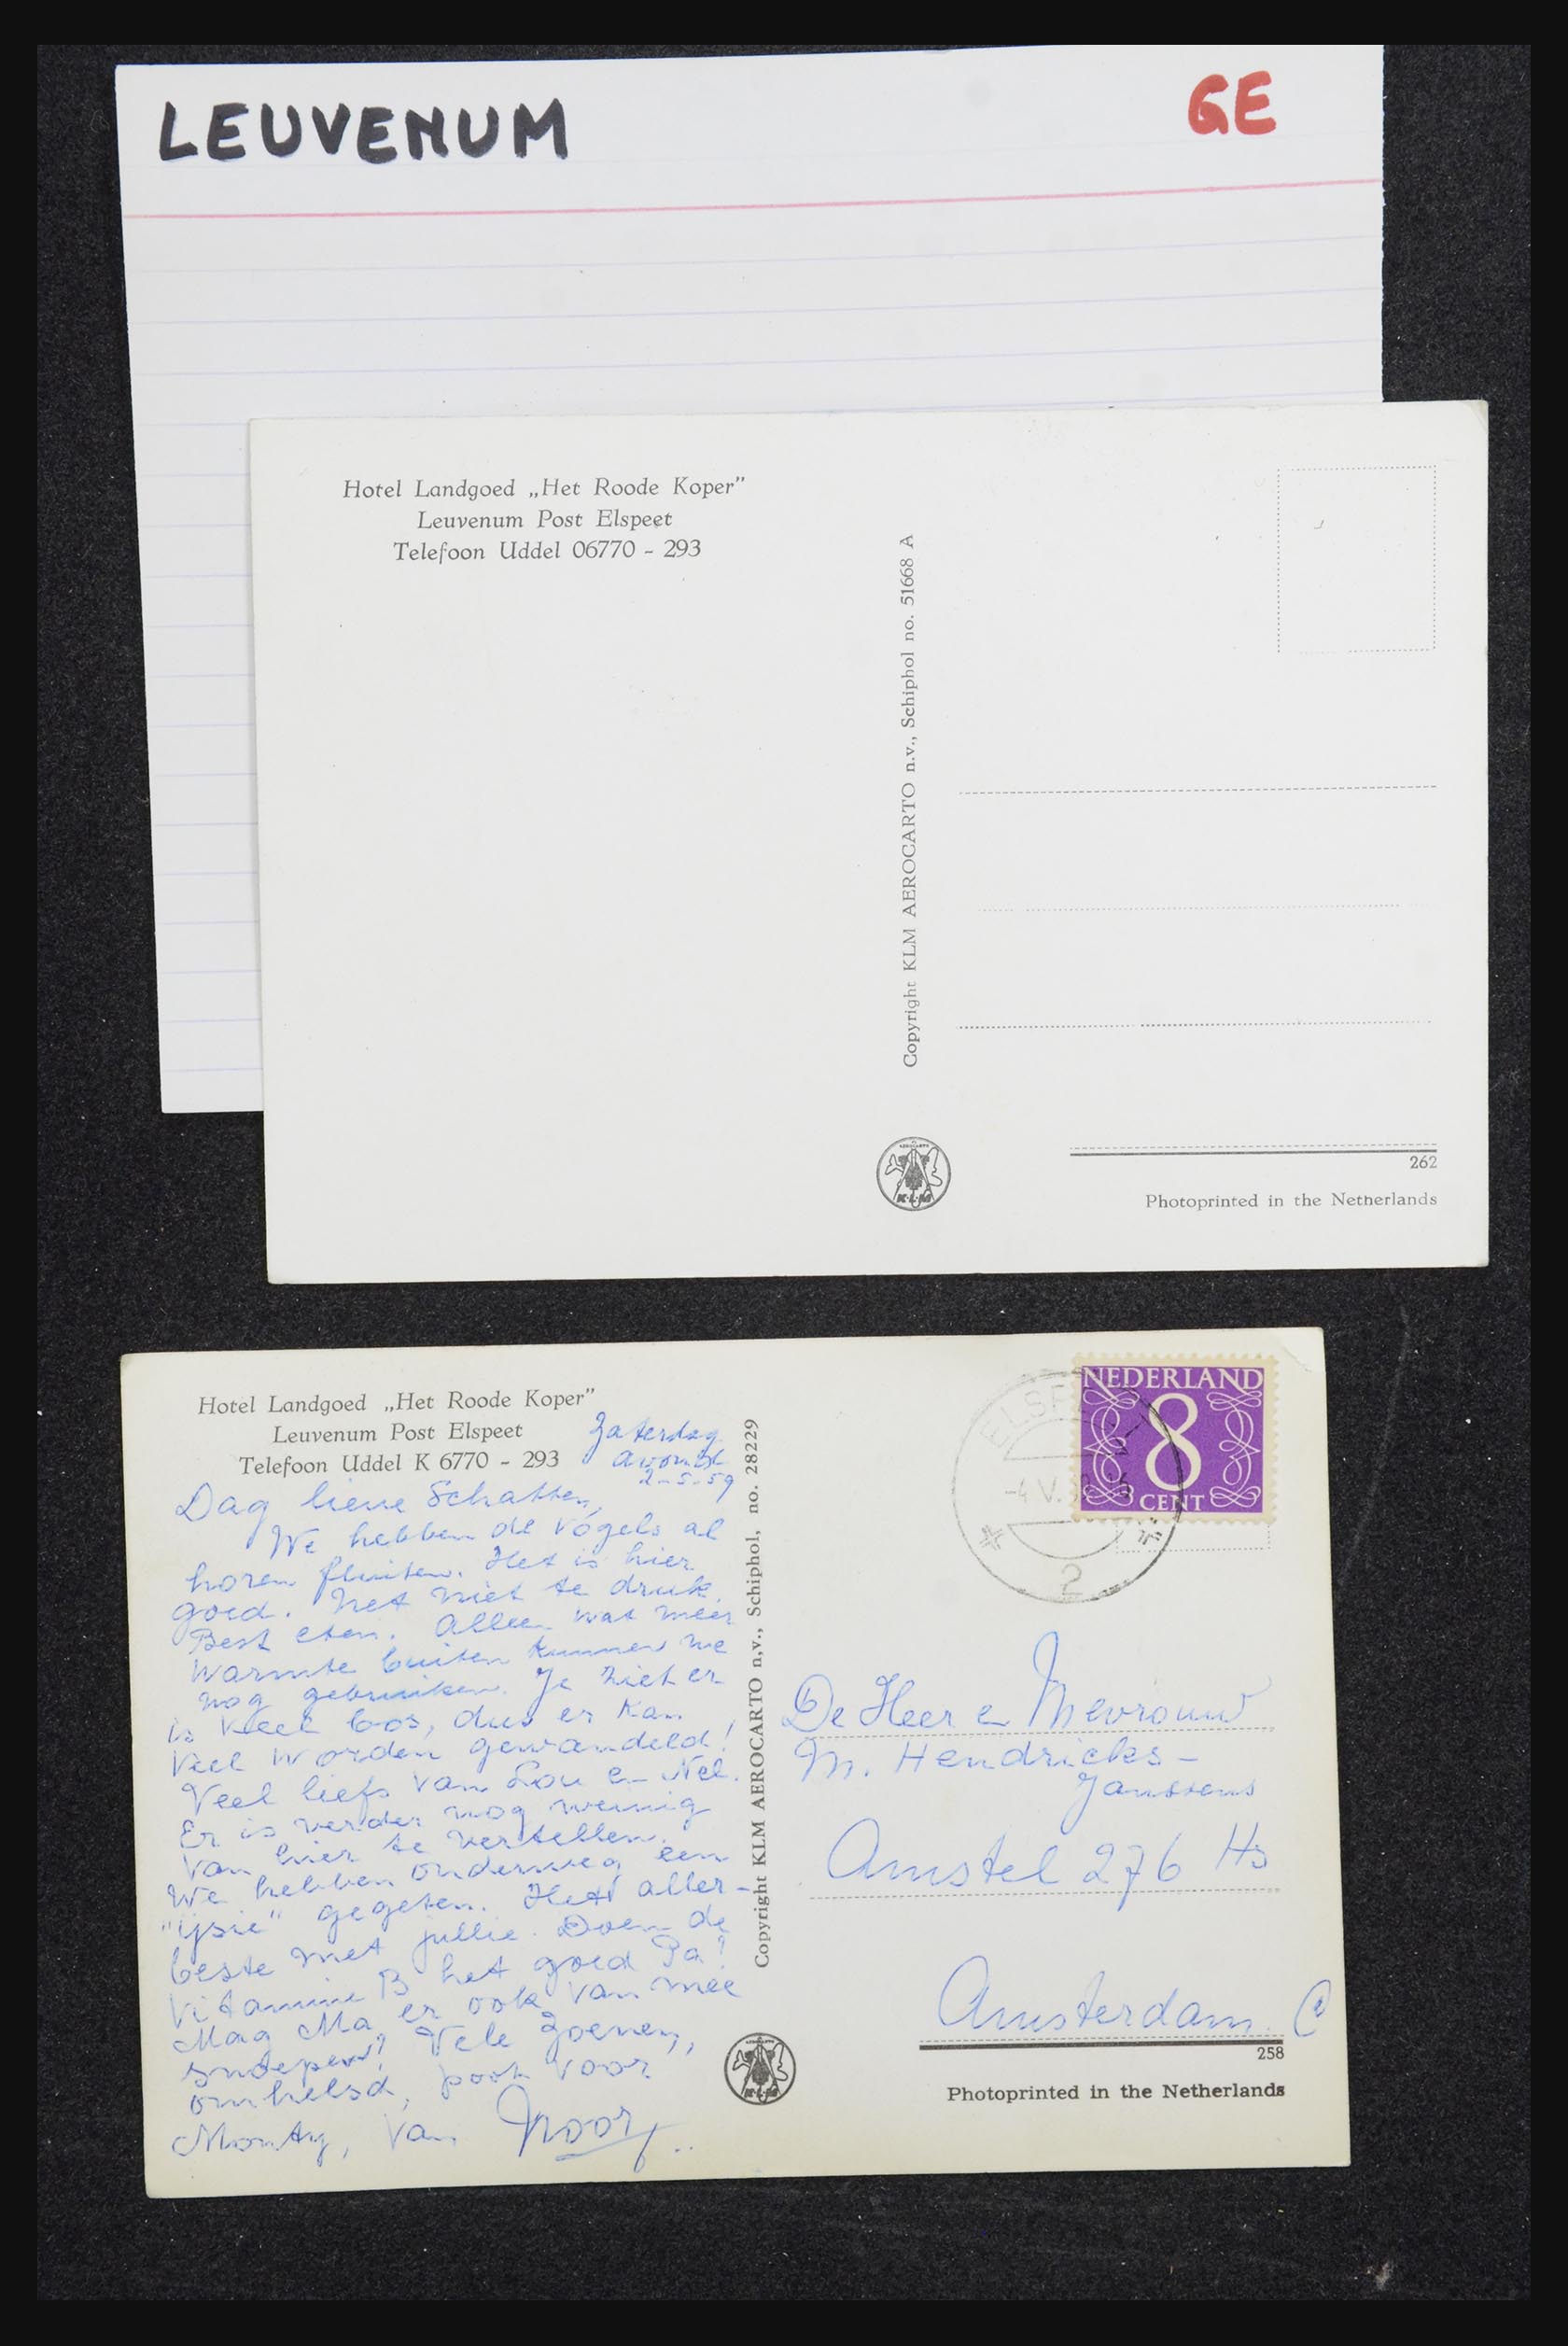 LEUVENUM
GE
Hotel Landgoed „Het Roode Koper”
Leuvenum Post Elspeet
Telefoon Uddel 06770 - 293
Copyright KLM AEROCARTO n.v., Schiphol no. 51668 A
K·L·M
262
Photoprinted in the Netherlands
Hotel Landgoed „Het Roode Koper”
Leuvenum Post Elspeet
Telefoon Uddel K 6770 - 293
Zaterdag
avond
2-5-59
Dag lieve Schatten,
We hebben de vogels al
horen fluiten. Het is hier
goed. Net niet te druk.
Best eten. Alleen wat meer
warmte buiten kunnen we
nog gebruiken. Je ziet er
is veel bos, dus er kan
veel worden gewandeld!
Veel liefs van Lou en Nel.
Er is verder nog weinig
van hier te vertellen.
We hebben onderweg een
"ijsie" gegeten. Het aller-
beste met jullie. Doen de
vitamine B het goed Pa?
Mag Ma er ook van mee
snoepen? Vele zoenen,
omhelsd, poot voor
Monty, van Noor
Copyright KLM AEROCARTO n.v., Schiphol, no. 28229
NEDERLAND
8
CENT
ELSPE
-4 V.
2
De Heer en Mevrouw
M. Hendricks-
Janssens
Amstel 276 Hs
Amsterdam. C
K·L·M
258
Photoprinted in the Netherlands